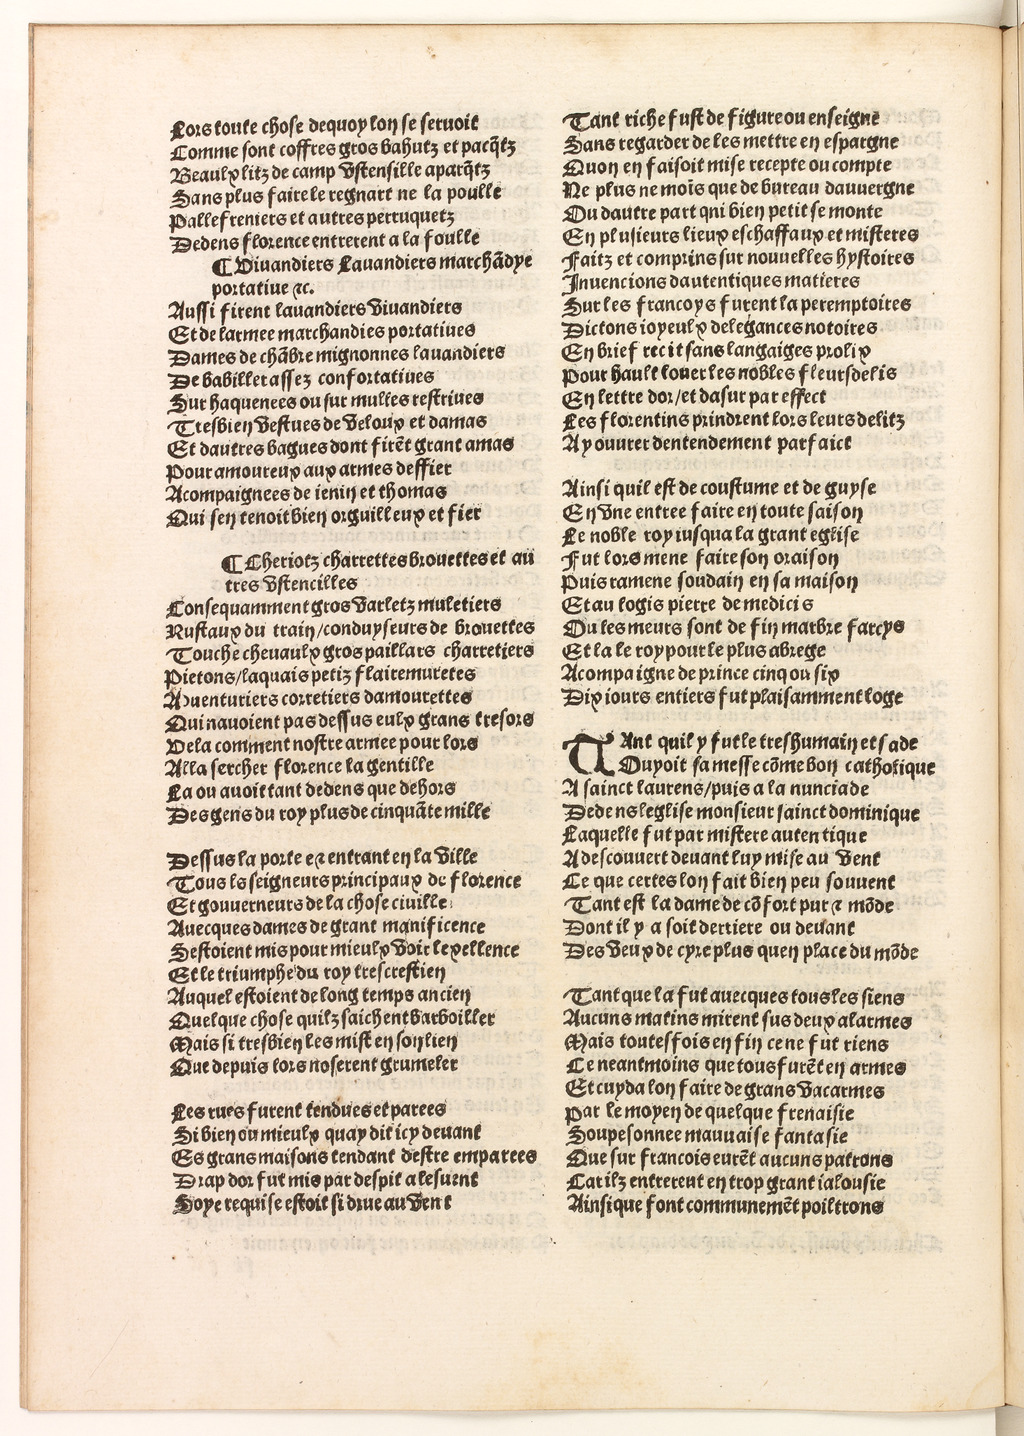 Lors toute chose dequoy lon se seruoit
Comme sont coffres gros bahutz et pacq̃tz
Beaulx litz de camp vstensille aparq̃tz
Sans plus faire le regnart ne la poulle
Pallefreniers et autres perruquetz
Dedens florence entrerent a la foulle
¶ Viuandiers Lauandiers marchãdye
portatiue ⁊c.
Aussi firent lauandiers viuandiers
Et de larmee marchandies portatiues
Dames de chãbre mignonnes lauandiers
De babiller assez confortatiues
Sur haquenees ou sur mulles restriues
Tresbien vestues de veloux et damas
Et dautres bagues dont firẽt grant amas
Pour amoureux aux armes deffier
Acompaignees de ienin et thomas
Qui sen tenoit bien orguilleux et fier
¶ Cheriotz charrettes brouettes et au
tres vstencilles
Consequamment gros varletz muletiers
Rustaux du train/conduyseurs de brouettes
Touche cheuaulx gros paillars charretiers
Pietons/laquais petiz flairemuretes
Aduenturiers corretiers damourettes
Qui nauoient pas dessus eulx grans tresors
Vela comment nostre armee pour lors
Alla sercher florence la gentille
La ou auoit tant dedens que dehors
Des gens du roy plus de cinquãte mille
Dessus la porte et entrant en la ville
Tous ls seigneurs principaux de florence
Et gouuerneurs de la chose ciuille
Auecques dames de grant manificence
Sestoient mis pour mieulx voir lexellence
Et le triumphe du roy trescrestien
Auquel estoient de long temps ancien
Quelque chose quilz saichent barboiller
Mais si tresbien les mist en son lien
Que depuis lors noserent grumeler
Les rues furent tendues et parees
Si bien ou mieulx quay dit icy deuant
Es grans maisons tendant destre emparees
Drap dor fut mis par despit a lesuent
Soye requise estoit si drue au vent
Tant riche fust de figure ou enseigne
Sans regarder de les mettre en espargne
Quon en faisoit mise recepte ou compte
Ne plus ne mois que de bureau dauuergne
Ou dautre part qni bien petit se monte
En plusieurs lieux eschaffaux et misteres
Faitz et comprins sur nouuelles hystoires
Inuencions dautentiques matieres
Sur les francoys furent la peremptoires
Dictons ioyeulx delegances notoires
En brief recit sans langaiges prolix
Pour hault louer les nobles fleursdelis
En lettre dor/et dasur par effect
Les florentins prindrent lors leurs delitz
A y ouurer dentendement parfaict
Ainsi quil est de coustume et de guyse
En vne entree faire en toute saison
Le noble roy iusqua la grant eglise
Fut lors mene faire son oraison
Puis ramene soudain en sa maison
Et au logis pierre de medicis
Ou les meurs sont de fin marbre farcys
Et la le roy pour le plus abrege
Acompaigne de prince cinq ou six
Dix iours entiers fut plaisamment loge
TAnt quil y fut le treshumain et sade
Ouyoit sa messe cõme bon catholique
A sainct laurens/puis a la nunciade
Dedens leglise monsieur sainct dominique
Laquelle fut par mistere autentique
A descouuert deuant luy mise au vent
Ce que certes lon fait bien peu souuent
Tant est la dame de cõfort pur ⁊ mõde
Dont il y a soit derriere ou deuant
Des veux de cyre plus quen place du mõde
Tant que la fut auecques tous les siens
Aucuns matins mirent sus deux alarmes
Mais toutesfois en fin ce ne fut riens
Ce neantmoins que tous furẽt en armes
Et cuyda lon faire de grans vacarmes
Par le moyen de quelque frenaisie
Soupesonnee mauuaise fantasie
Que sur francois eurẽt aucuns patrons
Car ilz entrerent en trop grant ialousie
Ainsi que font communemẽt poiltrons